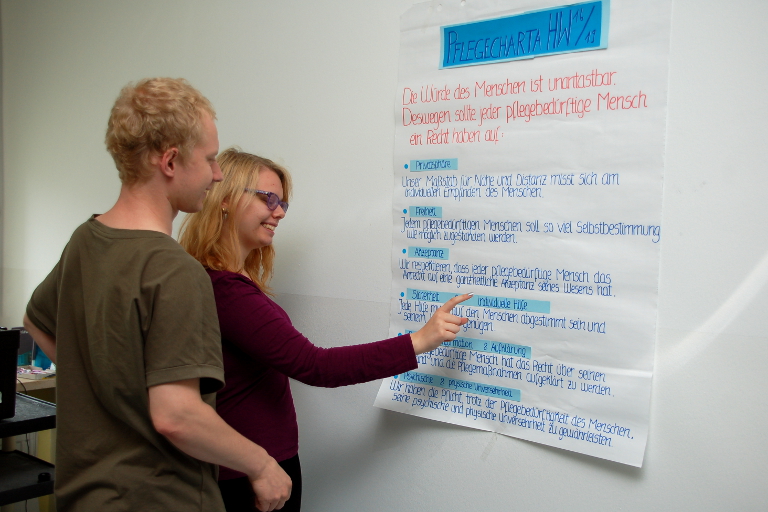 PFLEGECHARTA HW 16/19
Die Würde des Menschen ist unantastbar.
Deswegen sollte jeder pflegebedürftige Mensch
ein Recht haben auf:
• Privatsphäre
Unser Maßstab für Nähe und Distanz misst sich am
individuellen Empfinden des Menschen.
• Freiheit
Jedem pflegebedürftigen Menschen soll so viel Selbstbestimmung
wie möglich zugestanden werden.
• Akzeptanz
Wir respektieren, dass jeder pflegebedürftige Mensch das
Anrecht auf eine ganzheitliche Akzeptanz seines Wesens hat.
• Sicherheit individuelle Hilfe
Jede Hilfe muss auf den Menschen abgestimmt sein und
genügen.
& Aufklärung
Mensch hat das Recht über seinen
und die Pflegemaßnahmen aufgeklärt zu werden.
Psychische & physische Unversehrtheit
Wir haben die Pflicht, trotz der Pflegebedürftigkeit des Menschen,
seine psychische und physische Unversehrtheit zu gewährleisten.